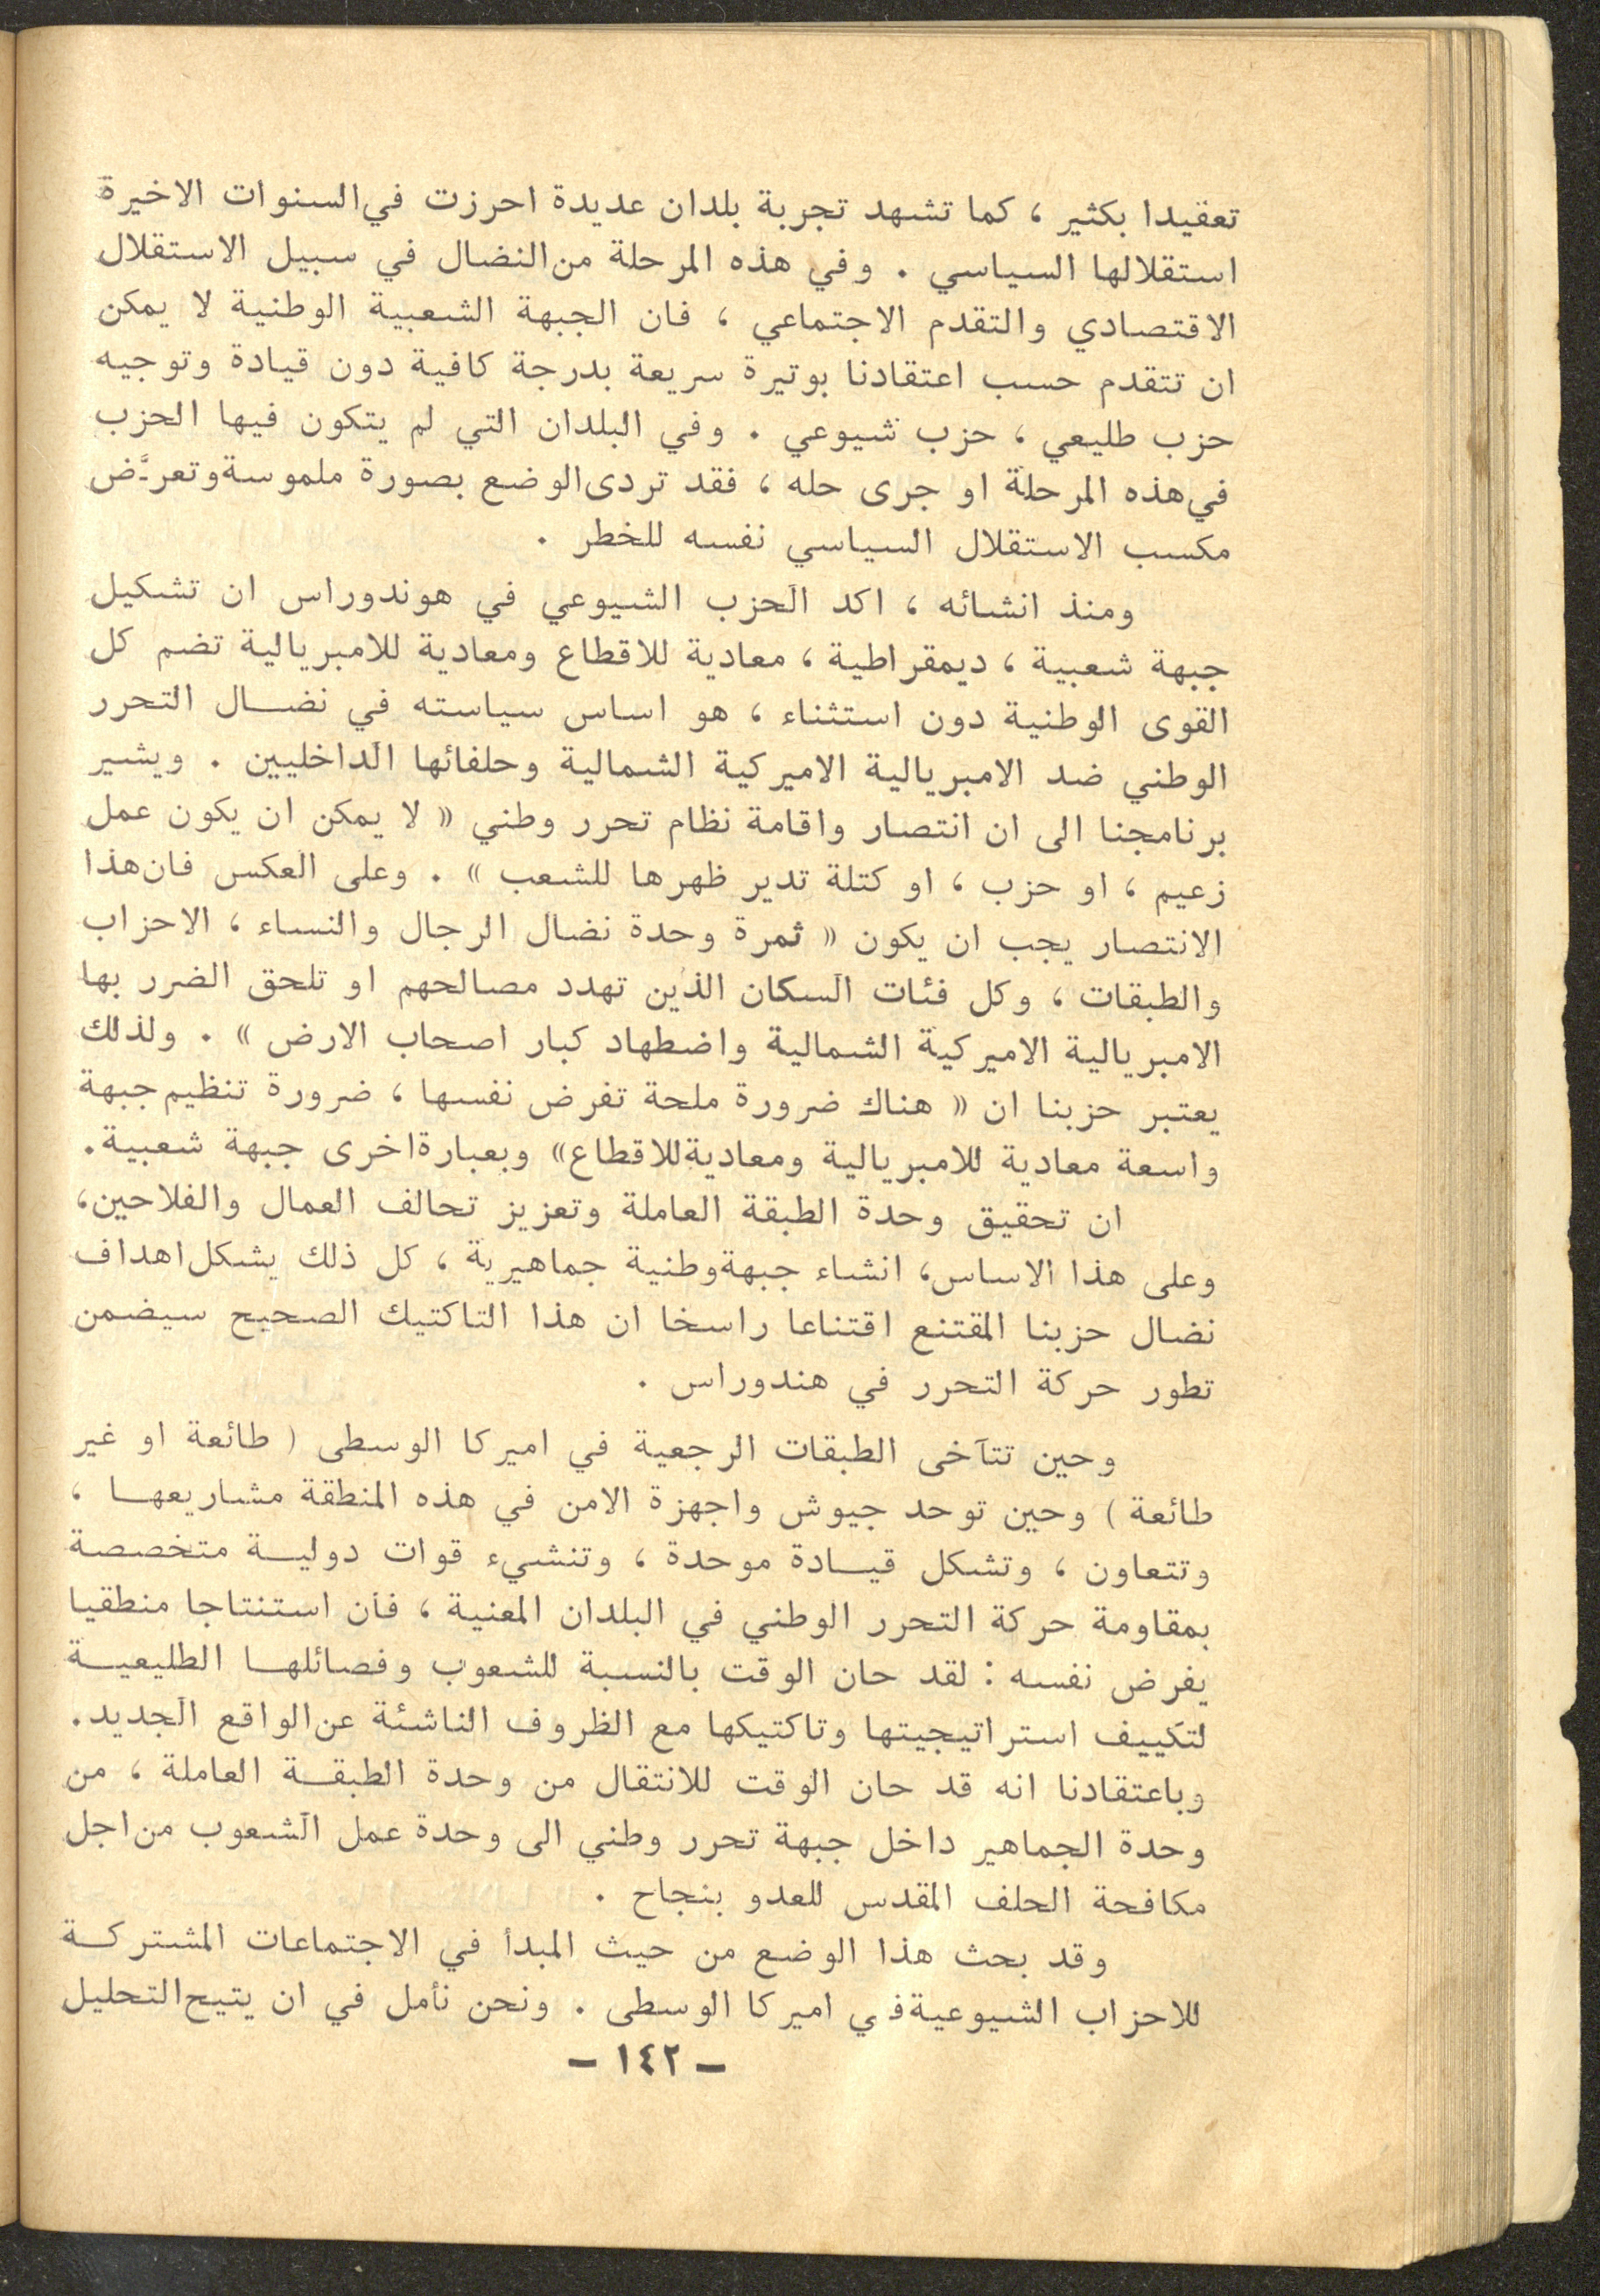 تعقيدا بكثير ، كما تشهد تجربة بلدان عديدة احرزت في السنوات الاخيرة
استقلالها السياسي . وفي هذه المرحلة من النضال في سبيل الاستقلال
الاقتصادي والتقدم الاجتماعي ، فان الجبهة الشعبية الوطنية لا يمكن
ان تتقدم حسب اعتقادنا بوتيرة سريعة بدرجة كافية دون قيادة وتوجيه
حزب طليعي ، حزب شيوعي . وفي البلدان التي لم يتكون فيها الحزب
في هذه المرحلة او جرى حله ، فقد تردى الوضع بصورة ملموسة وتعرَّض
مكسب الاستقلال السياسي نفسه للخطر .
ومنذ انشائه ، اكد الحزب الشيوعي في هوندوراس ان تشكيل
جبهة شعبية ، ديمقراطية ، معادية للاقطاع ومعادية للامبريالية تضم كل
القوى الوطنية دون استثناء ، هو اساس سياسته في نضـــال التحرر
الوطني ضد الامبريالية الاميركية الشمالية وحلفائها الداخليين . ويشير
برنامجنا الى ان انتصار واقامة نظام تحرر وطني « لا يمكن ان يكون عمل
زعيم ، او حزب ، او كتلة تدير ظهرها للشعب » . وعلى العكس فان هذا
الانتصار يجب ان يكون « ثمرة وحدة نضال الرجال والنساء ، الاحزاب
والطبقات ، وكل فئات السكان الذين تهدد مصالحهم او تلحق الضرر بها
الامبريالية الاميركية الشمالية واضطهاد كبار اصحاب الارض » . ولذلك
يعتبر حزبنا ان « هناك ضرورة ملحة تفرض نفسها ، ضرورة تنظيم جبهة
واسعة معادية للامبريالية ومعادية للاقطاع» وبعبارة اخرى جبهة شعبية.
ان تحقيق وحدة الطبقة العاملة وتعزيز تحالف العمال والفلاحين،
وعلى هذا الاساس، انشاء جبهة وطنية جماهيرية ، كل ذلك يشكل اهداف
نضال حزبنا المقتنع اقتناعا راسخا ان هذا التاكتيك الصحيح سيضمن
تطور حركة التحرر في هندوراس .
وحين تتآخى الطبقات الرجعية في اميركا الوسطى ( طائعة او غير
طائعة ) وحين توحد جيوش واجهزة الامن في هذه المنطقة مشاريعهــا ،
وتتعاون ، وتشكل قيـــادة موحدة ، وتنشيء قوات دوليــة متخصصة
بمقاومة حركة التحرر الوطني في البلدان المعنية ، فان استنتاجا منطقيا
يفرض نفسه : لقد حان الوقت بالنسبة للشعوب وفصائلهــا الطليعيــة
لتكييف استراتيجيتها وتاكتيكها مع الظروف الناشئة عن الواقع الجديد.
وباعتقادنا انه قد حان الوقت للانتقال من وحدة الطبقــة العاملة ، من
وحدة الجماهير داخل جبهة تحرر وطني الى وحدة عمل الشعوب من اجل
مكافحة الحلف المقدس للعدو بنجاح .
وقد بحث هذا الوضع من حيث المبدأ في الاجتماعات المشتركــة
للاحزاب الشيوعية في اميركا الوسطى . ونحن نأمل في ان يتيح التحليل
– ١٤٢ –